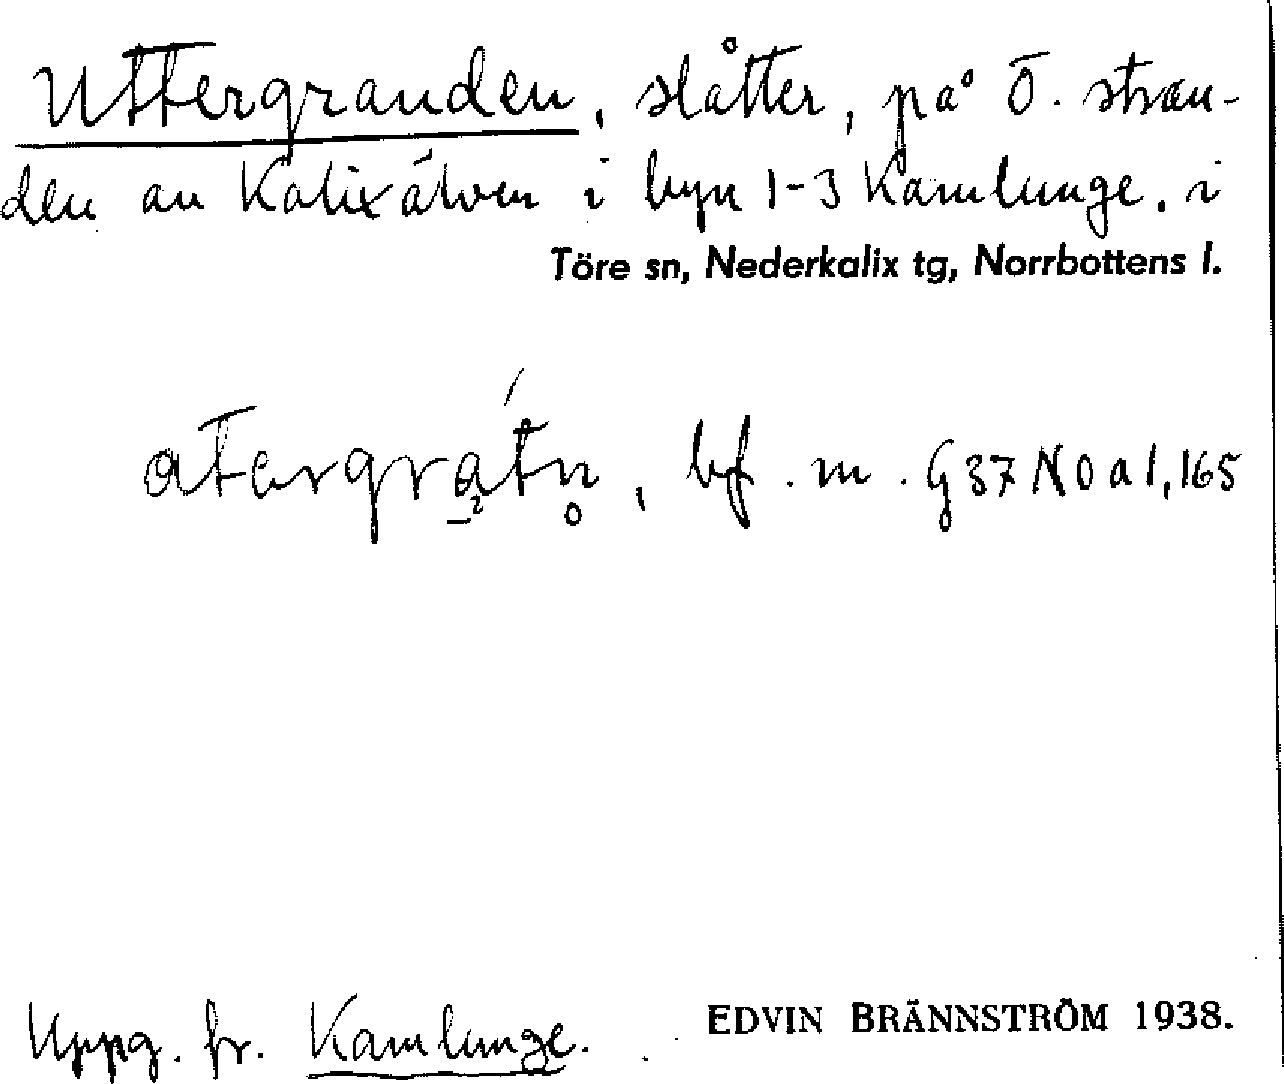 Uttergranden, slåtter, på ö. stran-
den av Kalixälven i byn 1-3 Kamlunge, i
Töre sn, Nederkalix tg, Norrbottens l.
bf. m. G 37 N O a 1, 165
Uppg. fr. Kamlunge.
EDVIN BRÄNNSTRÖM 1938.